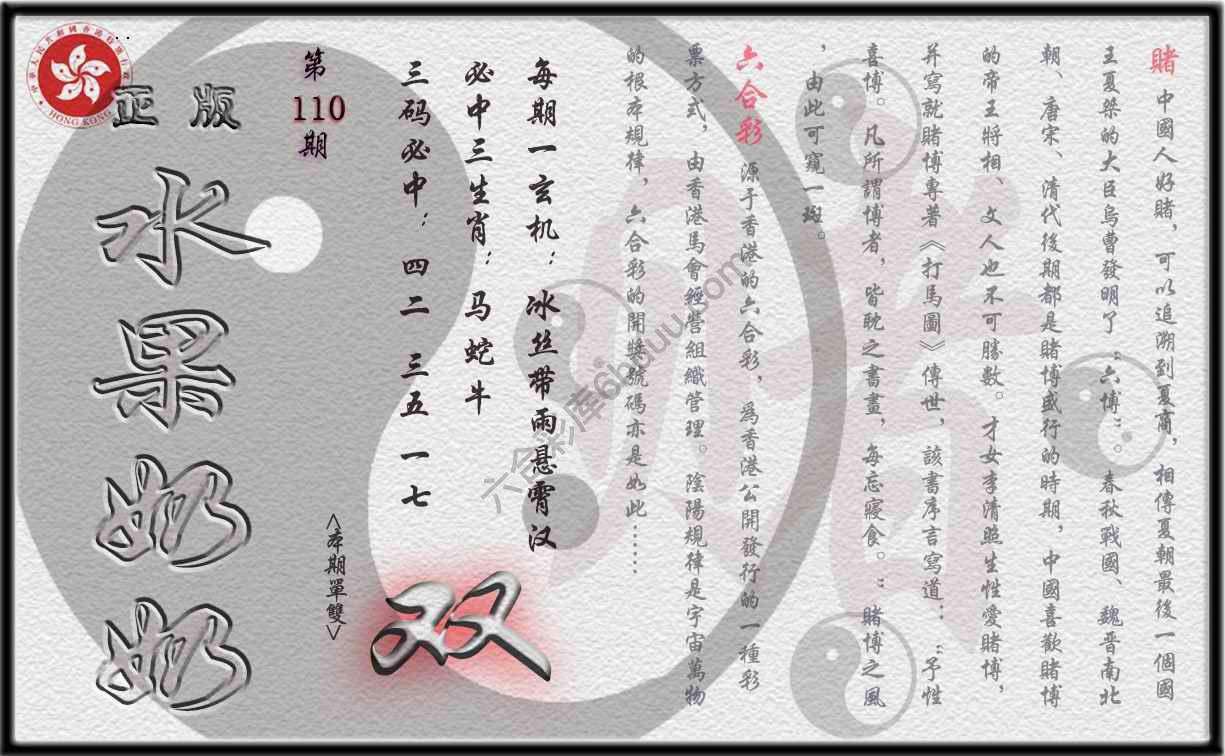 賭 中國人好賭，可以追溯到夏商，相傳夏朝最後一個國
王夏桀的大臣烏曹發明了“六博”。春秋戰國、魏晋南北
朝、唐宋、清代後期都是賭博盛行的時期，中國喜歡賭博
的帝王將相、文人也不可勝數。才女李清照生性愛賭博，
并寫就賭博專著《打馬圖》傳世，該書序言寫道：“予性
喜博。凡所謂博者，皆耽之書畫，每忘寢食。”賭博之風
，由此可窺一斑。
六合彩 源于香港的六合彩，爲香港公開發行的一種彩
票方式，由香港馬會經營組織管理。陰陽規律是宇宙萬物
的根本規律，六合彩的開獎號碼亦是如此……
每期一玄机：冰丝带雨悬霄汉
必中三生肖：马蛇牛
三码必中：四二 三五 一七
双
<本期單雙>
第
110
期
正版
水果奶奶
HONG KONG
六合彩库6hduu.com